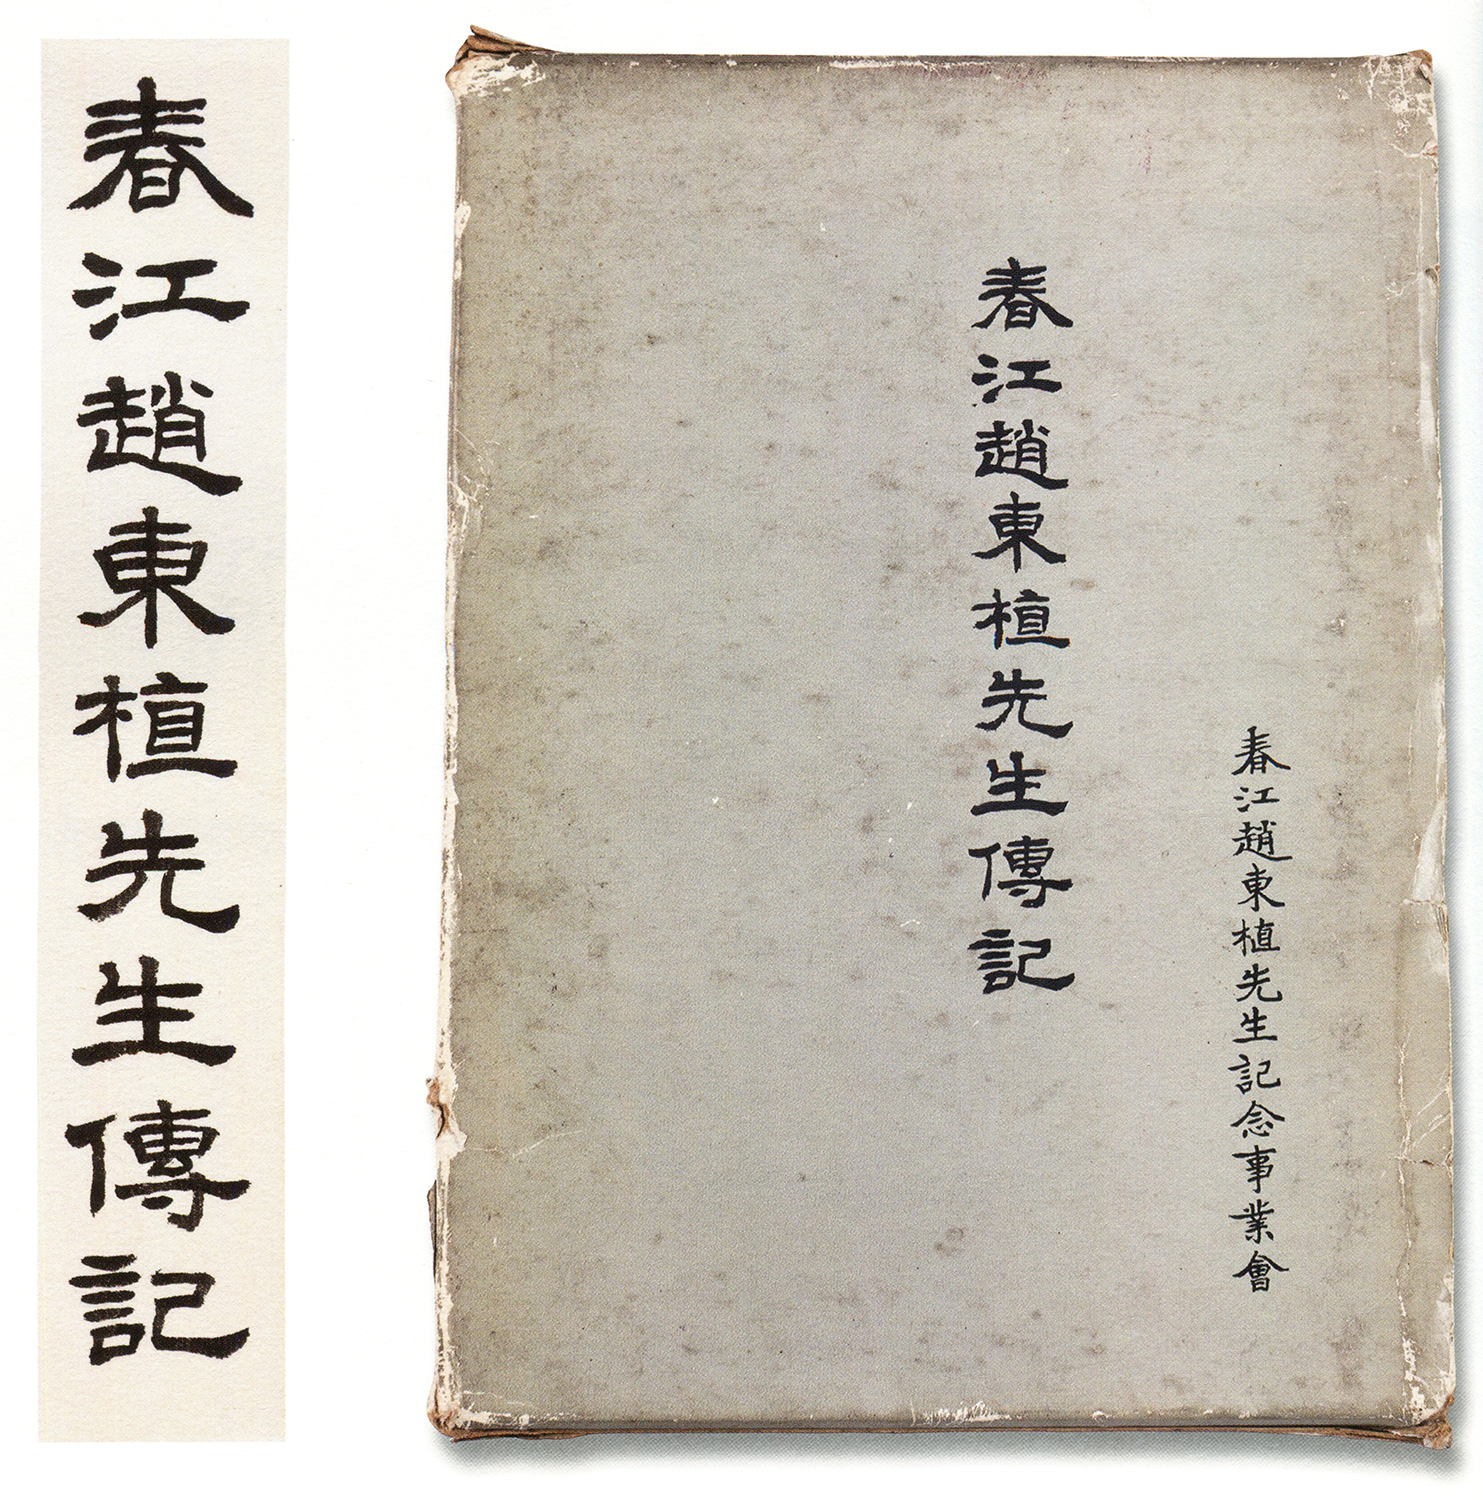 春江趙東植先生傳記
春江趙東植先生傳記
春江趙東植先生記念事業會